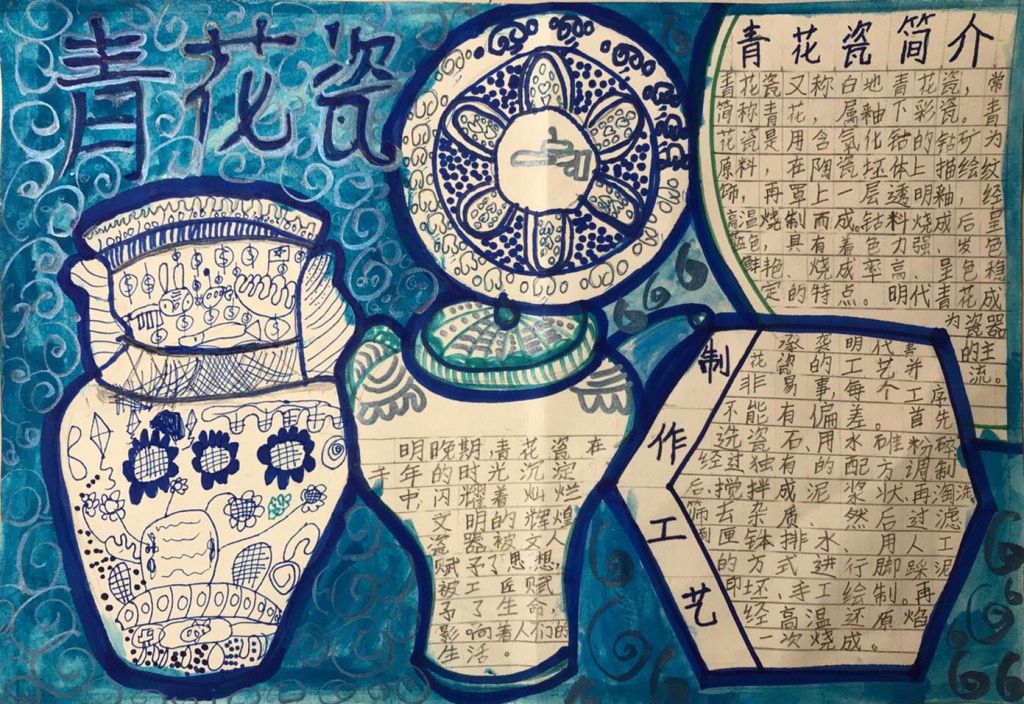 青花瓷
青花瓷简介
青花瓷又称白地青花瓷，常
简称青花，属釉下彩瓷。青
花瓷是用含氧化钴的钴矿为
原料，在陶瓷坯体上描绘纹
饰，再罩上一层透明釉，经
高温烧制而成钴料烧成后呈
蓝色，具有着色力强、发色
鲜艳、烧成率高、呈色稳
定的特点。明代青花成
为瓷器
的主
流。
明晚期，青花瓷在
千年的时光沉淀
中，闪耀着灿烂
文明的辉煌
瓷器被文人
赋予了思想，
被工匠赋
予了生命，
影响着人们的
生活。
制作工艺
承袭明代青
花瓷的工艺并
非易事，每个工序
不能有偏差。首先
选瓷石，用水碓粉碎
经过独有的配方调制
后、搅拌成泥浆状，再淘洗
筛去杂质、然后过滤
匣钵排水、用人工
的方式进行脚踩泥
印坯、手工绘制。再
经高温还原焰
一次烧成。